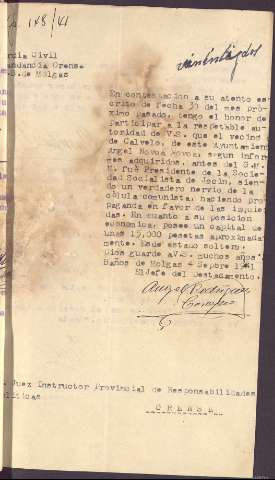 148/41
Civil
Comandancia Orense
de Molgas
En contestacion a su atento es-
crito de fecha 30 del mes pró-
ximo pasado, tengo el honor de
participar a la respetable au-
toridad de V.S. que el vecino
de Calvelo, de este Ayuntamient
Angel Novoa Novoa, segun infor
mes adquiridos, antes del G.M.
N. fué Presidente de la Socie-
dad Socialista de Jocin, sien-
do un verdadero nervio de la
célula comunista, haciendo pro
paganda en favor de las izquier
das. En cuanto a su posición
económica, posee un capital de
unas 15,000 pesetas aproximada
mente. Es de estado soltero.
Dios guarde a V.S. muchos años
Baños de Molgas 4 Sepbre 1941
El Jefe del Destacamento.
Angel Rodriguez
Juez Instructor Provincial de Responsabilidades
Políticas
ORENSE